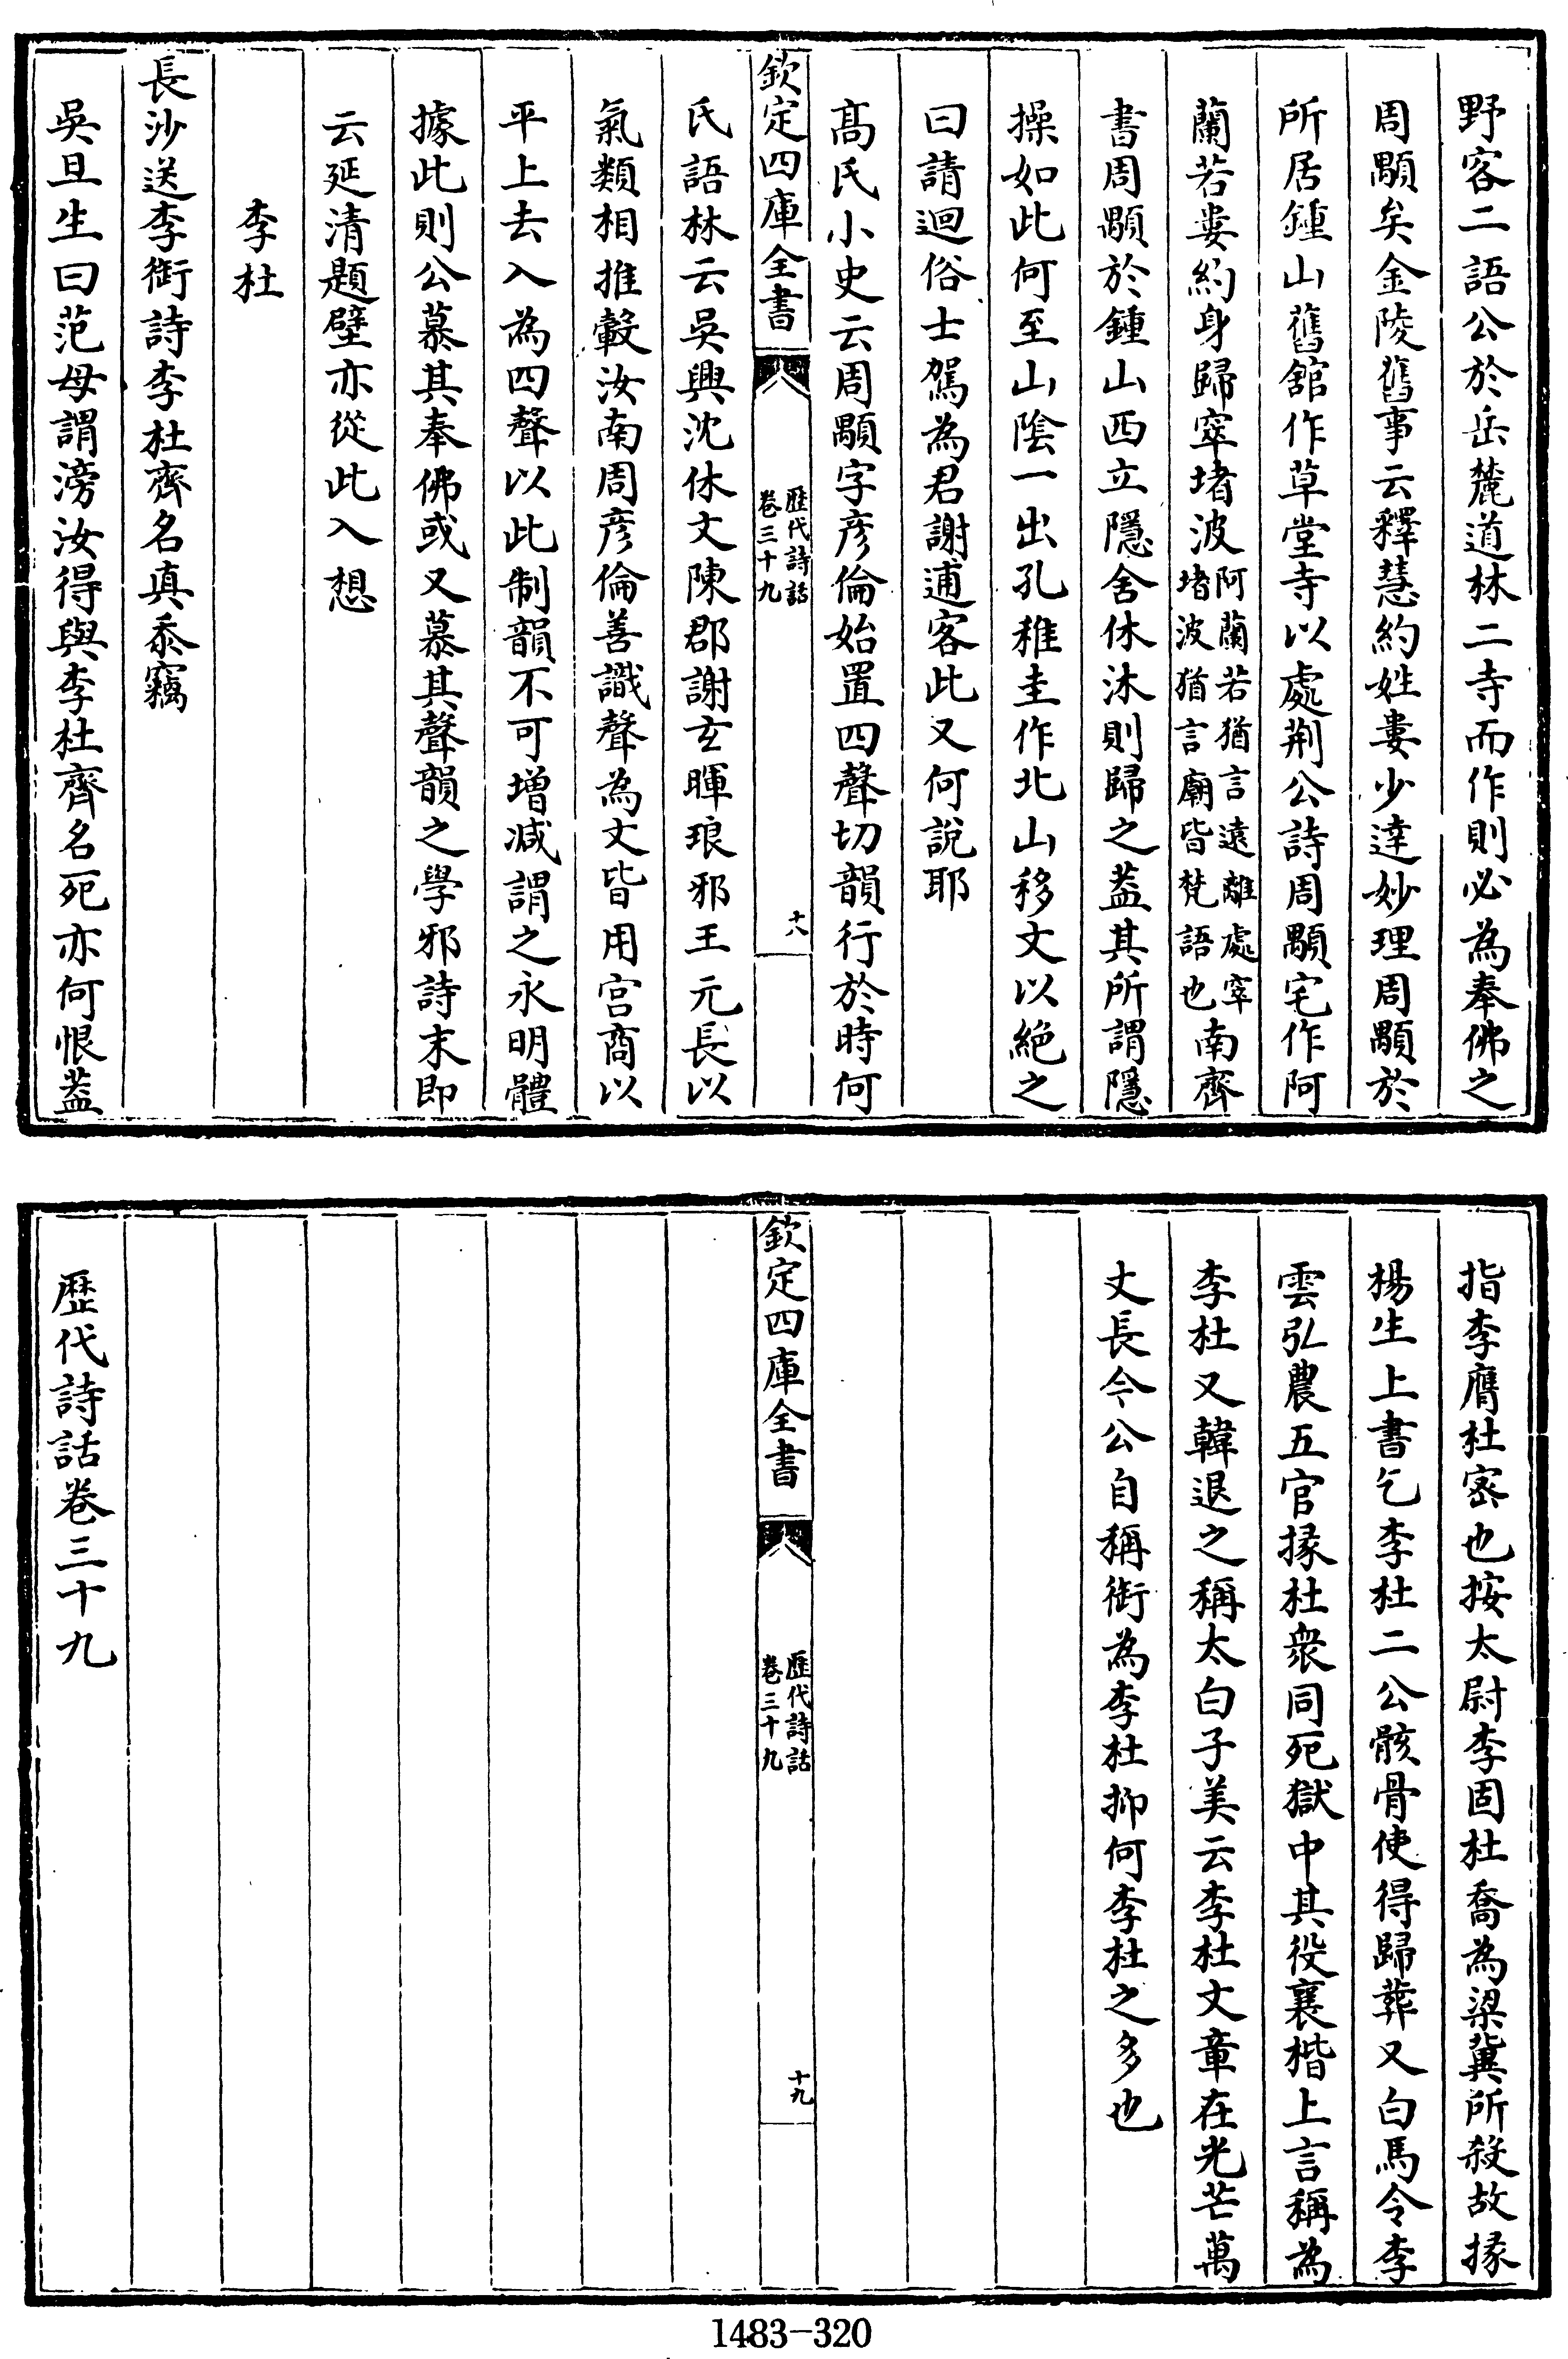 野客二語公於岳麓道林二寺而作則必為奉佛之
周顒矣金陵舊事云釋慧約姓婁少達妙理周顒於
所居鍾山舊舘作草堂寺以處荆公詩周顒宅作阿
蘭若婁約身歸窣堵波阿蘭若猶言遠離處窣堵波猶言廟皆梵語也南齊
書周顒於鍾山西立隱舍休沐則歸之葢其所謂隱
操如此何至山陰一出孔稚圭作北山移文以絶之
曰請迴俗士駕為君謝逋客此又何說耶
髙氏小史云周顒字彦倫始置四聲切韻行於時何
欽定四庫全書
歷代詩話
卷三十九
十八
氏語林云吳興沈休文陳郡謝玄暉琅邪王元長以
氣類相推轂汝南周彦倫善識聲為文皆用宫商以
平上去入為四聲以此制韻不可增减謂之永明體
據此則公慕其奉佛或又慕其聲韻之學邪詩末即
云延清題壁亦從此入想
李杜
長沙送李銜詩李杜齊名真忝竊
吳旦生曰范母謂滂汝得與李杜齊名死亦何恨葢
指李膺杜宻也按太尉李固杜喬為梁冀所殺故掾
楊生上書乞李杜二公骸骨使得歸葬又白馬令李
雲弘農五官掾杜衆同死獄中其役襄楷上言稱為
李杜又韓退之稱太白子美云李杜文章在光芒萬
丈長今公自稱銜為李杜抑何李杜之多也
欽定四庫全書
歷代詩話
卷三十九
十九
歷代詩話卷三十九
1483-320